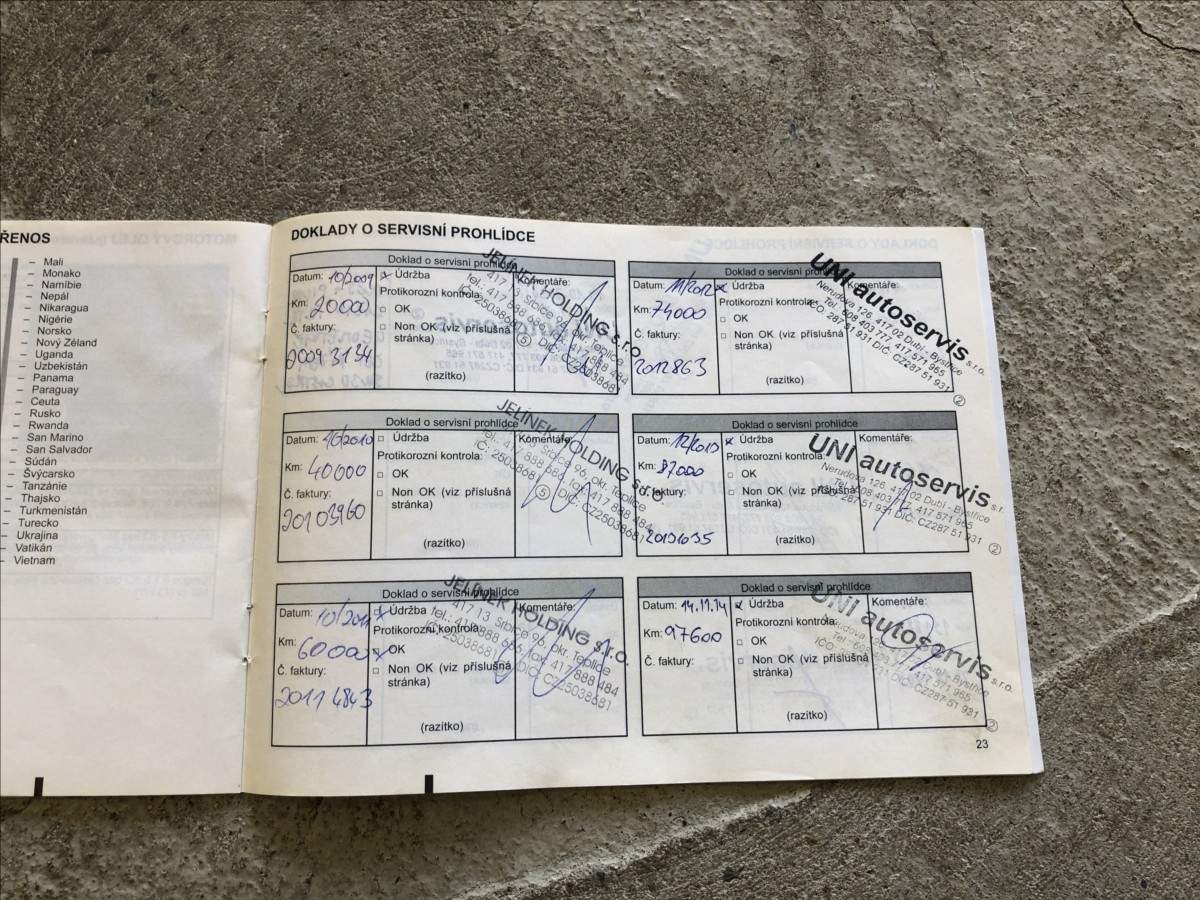 ŘENOS
– Mali
– Monako
– Namíbie
– Nepál
– Nikaragua
– Nigérie
– Norsko
– Nový Zéland
– Uganda
– Uzbekistán
– Panama
– Paraguay
– Ceuta
– Rusko
– Rwanda
– San Marino
– San Salvador
– Súdán
– Švýcarsko
– Tanzánie
– Thajsko
– Turkmenistán
– Turecko
– Ukrajina
– Vatikán
– Vietnam
DOKLADY O SERVISNÍ PROHLÍDCE
Doklad o servisní prohlídce
Datum: 10/2009
Km: 20000
Č. faktury:
20093134
Údržba
Protikorozní kontrola:
OK
Non OK (viz příslušná
stránka)
(razítko)
Komentáře:
JELÍNEK HOLDING s.r.o.
417 13 Srbice 96, okr. Teplice
IČ: 25038681 DIČ: CZ25038681
Doklad o servisní prohlídce
Datum: 10/2010
Km: 40000
Č. faktury:
20103960
Údržba
Protikorozní kontrola:
OK
Non OK (viz příslušná
stránka)
(razítko)
Komentáře:
JELÍNEK HOLDING s.r.o.
417 13 Srbice 96, okr. Teplice
IČ: 25038681 DIČ: CZ25038681
Doklad o servisní prohlídce
Datum: 10/2011
Km: 60000
Č. faktury:
20114843
Údržba
Protikorozní kontrola:
OK
Non OK (viz příslušná
stránka)
(razítko)
Komentáře:
JELÍNEK HOLDING s.r.o.
417 13 Srbice 96, okr. Teplice
tel.: 417 888 666, fax: 417 888 484
IČ: 25038681 DIČ: CZ25038681
Doklad o servisní prohlídce
Datum: 11/2012
Km: 74000
Č. faktury:
2012863
Údržba
Protikorozní kontrola:
OK
Non OK (viz příslušná
stránka)
(razítko)
Komentáře:
UNI autoservis s.r.o.
Nerudova 126, 417 02 Dubí - Bystřice
Tel. 608 403 777, 417 571 965
IČO: 287 51 931 DIČ: CZ287 51 931
2
Doklad o servisní prohlídce
Datum: 12/2013
Km: 87000
Č. faktury:
Údržba
Protikorozní kontrola:
OK
Non OK (viz příslušná
stránka)
(razítko)
Komentáře:
UNI autoservis s.r.o.
Nerudova 126, 417 02 Dubí - Bystřice
Tel. 608 403 777, 417 571 965
IČO: 287 51 931 DIČ: CZ287 51 931
2
Doklad o servisní prohlídce
Datum: 14.11.14
Km: 97600
Č. faktury:
Údržba
Protikorozní kontrola:
OK
Non OK (viz příslušná
stránka)
(razítko)
Komentáře:
UNI autoservis s.r.o.
Nerudova 126, 417 02 Dubí - Bystřice
Tel. 608 403 777, 417 571 965
IČO: 287 51 931 DIČ: CZ287 51 931
2
23